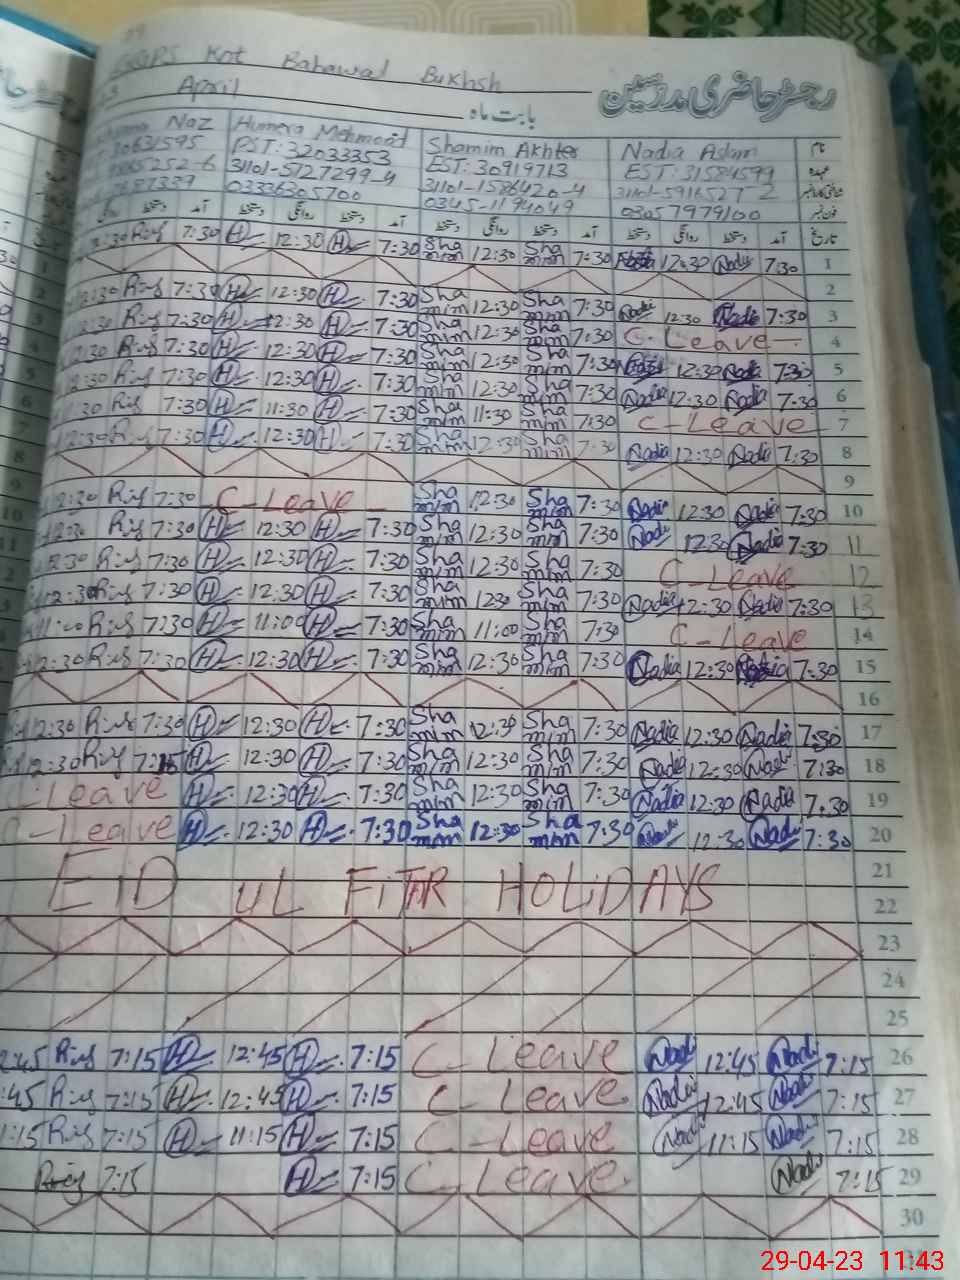 Kot Bahawal Bukhsh
رجسٹر حاضری مدرسین
April
بابت ماہ
Naz Humera Mehmood Shamim Akhter Nadia Aslam نام
PST: 32033353 EST: 30919713 EST: 31584599 عہدہ
31101-5127299-4 31101-1586420-4 31101-5916527-2
03336305700 0345-1194049 03057979100 فون نمبر
روانگی دستخط آمد دستخط روانگی دستخط آمد دستخط روانگی دستخط آمد دستخط روانگی دستخط آمد تاریخ
7:30 H 12:30 H 7:30 Shamim 12:30 Shamim 7:30 Nadia 12:30 Nadia 7:30 1
2
12:30 7:30 H 12:30 H 7:30 Shamim 12:30 Shamim 7:30 Nadia 12:30 Nadia 7:30 3
12:30 7:30 H 12:30 H 7:30 Shamim 12:30 Shamim 7:30 C-Leave 4
12:30 7:30 H 12:30 H 7:30 Shamim 12:30 Shamim 7:30 12:30 Nadia 7:30 5
12:30 7:30 H 12:30 H 7:30 Shamim 12:30 Shamim 7:30 Nadia 12:30 Nadia 7:30 6
11:30 7:30 H 11:30 H 7:30 Shamim 11:30 Shamim 7:30 C-Leave 7
12:30 7:30 H 12:30 H 7:30 Shamim 12:30 Shamim 7:30 Nadia 12:30 Nadia 7:30 8
9
12:30 7:30 C-Leave Shamim 12:30 Shamim 7:30 Nadia 12:30 Nadia 7:30 10
12:30 7:30 H 12:30 H 7:30 Shamim 12:30 Shamim 7:30 Nadia 12:30 Nadia 7:30 11
12:30 7:30 H 12:30 H 7:30 Shamim 12:30 Shamim 7:30 C-Leave 12
12:30 7:30 H 12:30 H 7:30 Shamim 12:30 Shamim 7:30 Nadia 12:30 Nadia 7:30 13
11:00 7:30 H 11:00 H 7:30 Shamim 11:00 Shamim 7:30 C-Leave 14
12:30 7:30 H 12:30 H 7:30 Shamim 12:30 Shamim 7:30 Nadia 12:30 Nadia 7:30 15
16
12:30 7:30 H 12:30 H 7:30 Shamim 12:30 Shamim 7:30 Nadia 12:30 Nadia 7:30 17
12:30 7:15 H 12:30 H 7:30 Shamim 12:30 Shamim 7:30 Nadia 12:30 Nadia 7:30 18
Leave H 12:30 H 7:30 Shamim 12:30 Shamim 7:30 Nadia 12:30 Nadia 7:30 19
C-Leave H 12:30 H 7:30 Shamim 12:30 Shamim 7:30 Nadia 12:30 Nadia 7:30 20
21
EiD UL FiTR HOLiDAYS
22
23
24
25
2:45 7:15 H 12:45 H 7:15 C-Leave Nadi 12:45 Nadi 7:15 26
:45 7:15 H 12:45 H 7:15 C-Leave Nadi 12:45 Nadi 7:15 27
1:15 7:15 H 11:15 H 7:15 C-Leave Nadi 11:15 Nadi 7:15 28
7:15 H 7:15 C-Leave Nadi 7:15 29
30
29-04-23 11:43